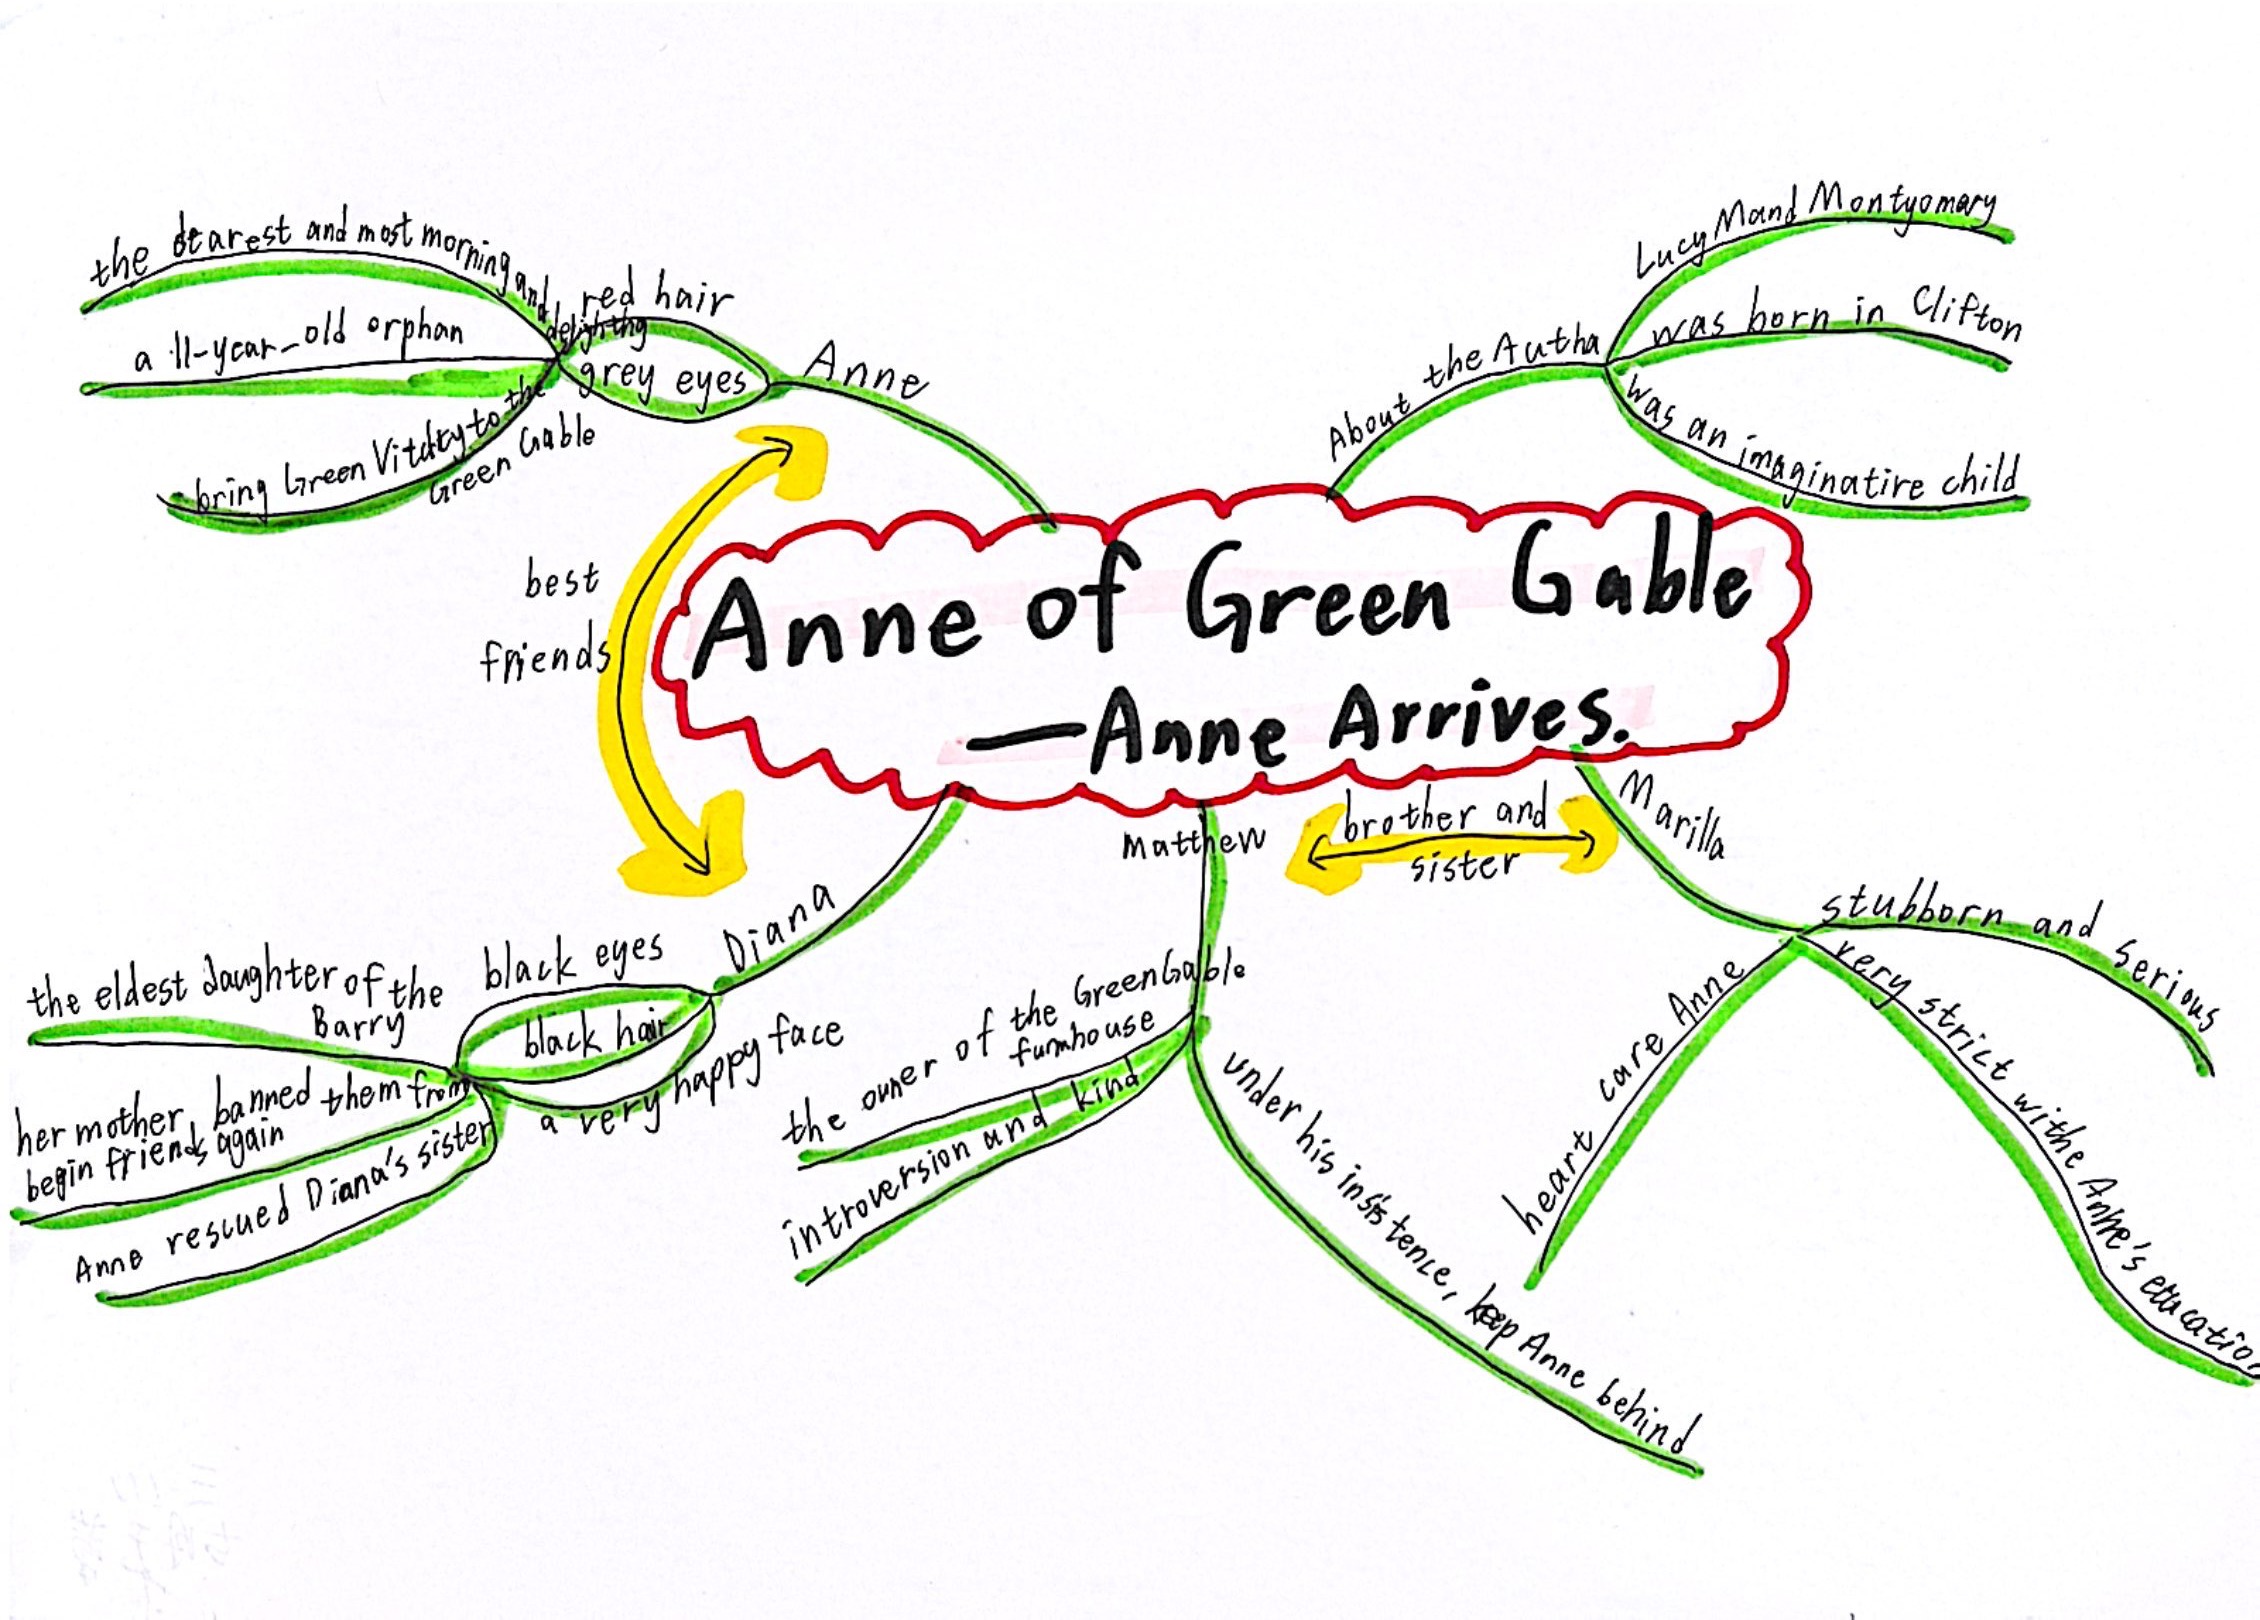 Anne of Green Gable
—Anne Arrives.
Anne
red hair
grey eyes
the dearest and most morning and
delighting
a 11-year-old orphan
bring Green Vitality to the
Green Gable
best
friends
About the Autha
Lucy Mand Montyomary
was born in Clifton
was an imaginative child
Diana
black eyes
black hair
a very happy face
the eldest daughter of the
Barry
her mother banned them from
begin friends again
Anne rescued Diana's sister
Matthew
the owner of the Green Gable
fumhouse
introversion and kind
under his insistence, keep Anne behind
brother and
sister
Marilla
stubborn and serious
very strict withe Anne's education
heart care Anne